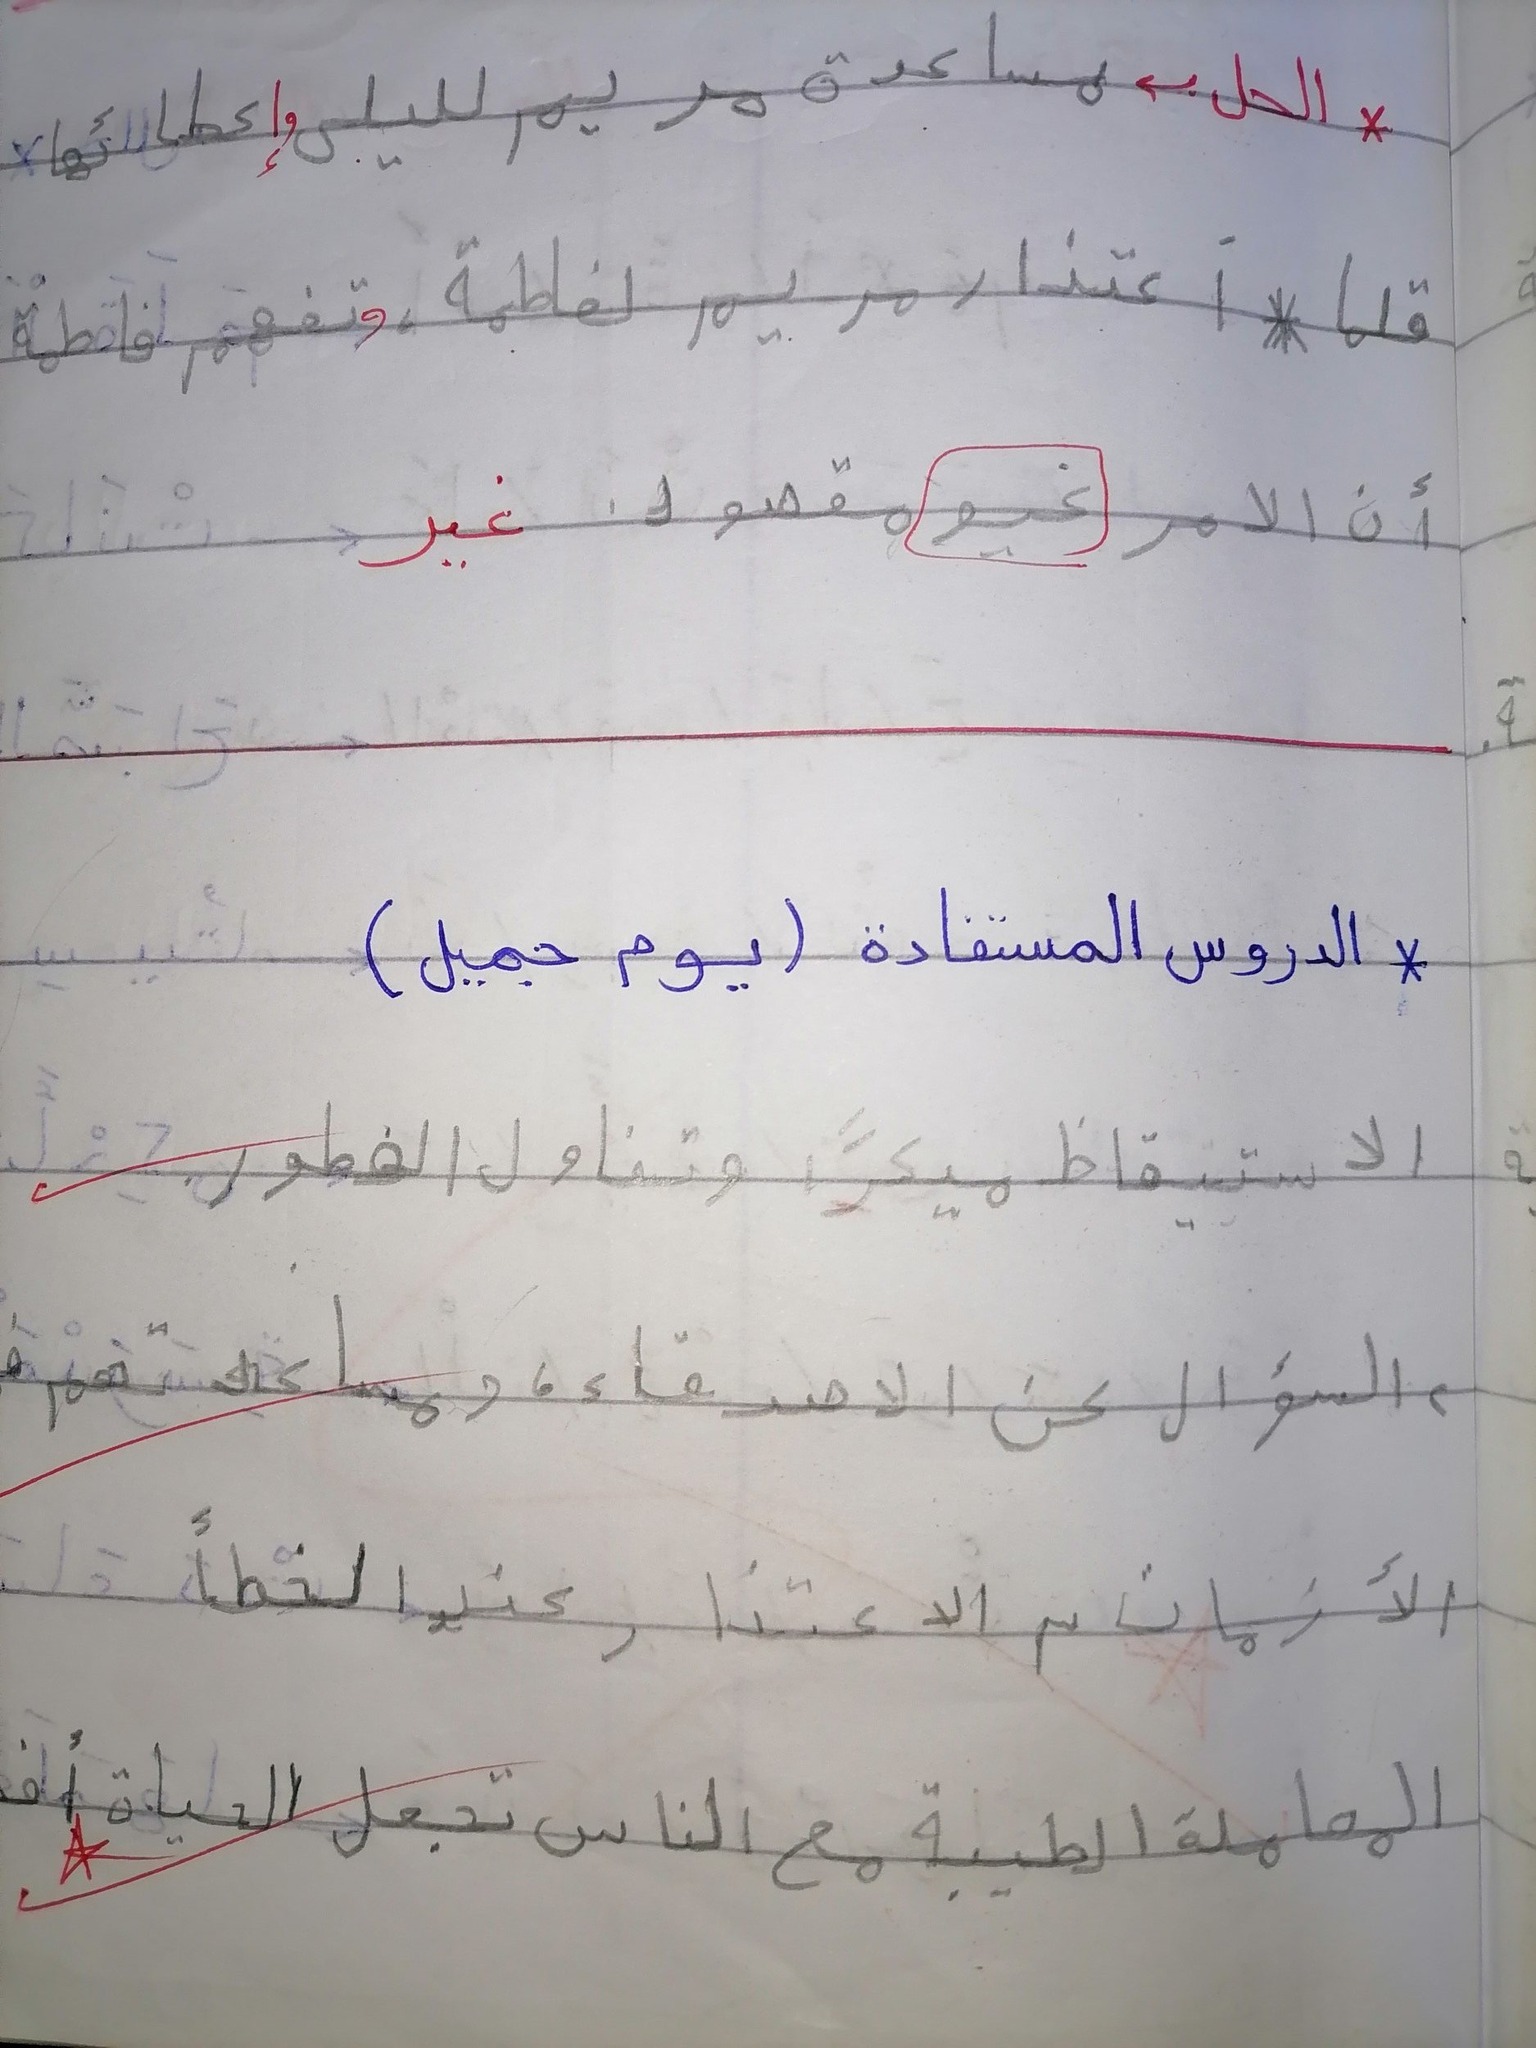 * الحل ← مساعدة مريم لليلى وإعطائها
قلما * أعتذار مريم لفاطمة، وتفهم فاطمة
أن الامر غيو مقصود. غير
* الدروس المستفادة (يوم جميل)
الاستيقاظ مبكرًا وتناول الفطور.
، السؤال عن الاصدقاء، ومساعدتهم
الأزمات، الاعتذار عند الخطأ
المعاملة الطيبة مع الناس تجعل الحياة